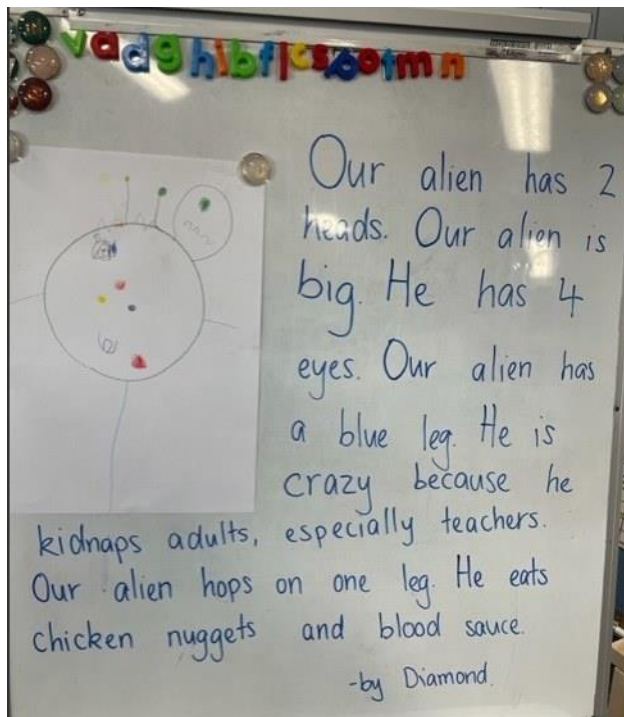 v a d g h i b f l c s p o t m n
Our alien has 2
heads. Our alien is
big. He has 4
eyes. Our alien has
a blue leg. He is
crazy because he
kidnaps adults, especially teachers.
Our alien hops on one leg. He eats
chicken nuggets and blood sauce.
-by Diamond.